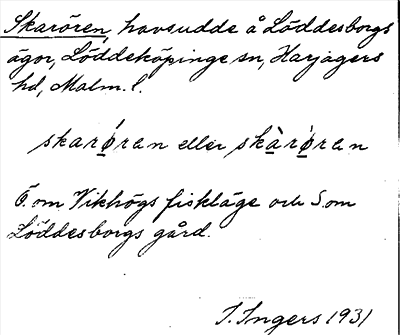 Skarören, havsudde å Löddesborgs
ägor, Löddeköpinge sn, Harjagers
hd, Malm. l.
skarǿran eller skàrǿran
Ö. om Vikhögs fiskläge och S. om
Löddesborgs gård.
I. Ingers 1931